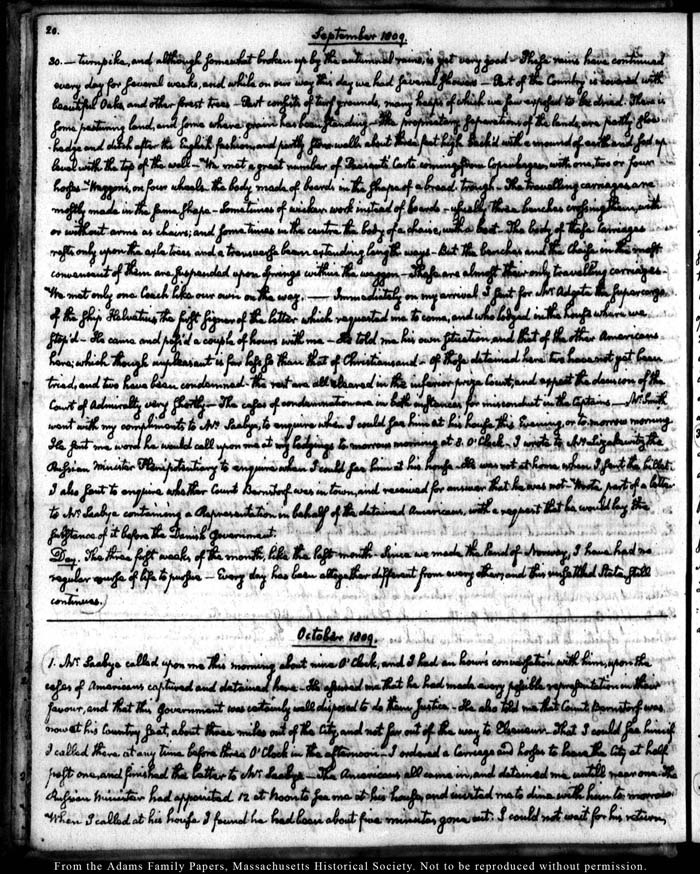 20.
September 1809.
30. — turnpike, and although somewhat broken up by the autumnal rains, is yet very good — These rains have continued
every day for several weeks, and while on our way this day we had several showers — Part of the Country is covered with
beautiful Oaks, and other forest trees — Part consists of turf grounds, many heaps of which we saw exposed to be dried. There is
some pasturing land, and some where grain has been standing — The proprietary separations of the lands, are partly
hedge and ditch after the English fashion, and partly stone walls about three feet high back'd with a mound of earth and sod up
level with the top of the wall — We met a great number of Peasants Carts coming from Copenhagen, with one, two or four
horses — Waggons, on four wheels, the body made of boards in the shape of a bread trough — The travelling carriages are
mostly made in the same shape — Sometimes of wicker work instead of boards — usually three benches crossing them, with
or without arms as chairs; and sometimes in the centre the body of a chaise, with a boot. The body of these carriages
rests only upon the axle trees and a transverse beam extending length ways — But the benches and the Chaise in the most
convenient of them are suspended upon springs within the waggon — These are almost their only travelling carriages —
We met only one Coach like our own on the way. — Immediately on my arrival I sent for Mr. Adgate the Supercargo
of the Ship Helvetius the first signer of the letter which requested me to come, and who lodged in the house where we
stop'd — He came and pass'd a couple of hours with me — He told me his own situation and that of the other Americans
here; which though unpleasant is far less so than that of Christiansand — Of those detained here two have not yet been
tried, and two have been condemned — the rest are all cleared in the inferior prize Court, and expect the decision of the
Court of Admiralty very shortly — The cases of condemnation are in both instances for misconduct in the Captains — Mr. Smith
went with my compliments to Mr. Saabye, to enquire when I could see him at his house this Evening, or to-morrow morning
He sent me word he would call upon me at my lodgings to-morrow morning at 8. O'Clock. I wrote to Mr. Lizakewitz the
Russian Minister Plenipotentiary to enquire when I could see him at his house — He was not at home when I sent the billet.
I also sent to enquire whether Count Bernstorf was in town, and received for answer that he was not — Wrote part of a letter
to Mr. Saabye containing a Representation in behalf of the detained Americans, with a request that he would lay the
substance of it before the Danish Government.
Day. The three first weeks of the month, like the last month. Since we made the land of Norway, I have had no
regular course of life to pursue — Every day has been altogether different from every other; and this unsettled State still
continues.
October 1809.
1. Mr. Saabye called upon me this morning about nine O'Clock, and I had an hour's conversation with him, upon the
cases of Americans captured and detained here — He assured me that he had made every possible representation in their
favour, and that this Government was certainly well disposed to do them Justice — He also told me that Count Bernstorf was
now at his Country Seat, about three miles out of the City, and not far out of the way to Elseneur. That I could see him if
I called there at any time before three O'Clock in the afternoon — I ordered a Carriage and horses to leave the City at half
past one, and finished the letter to Mr. Saabye — The Americans all came in, and detained me untill near one. The
Russian Minister had appointed 12 at Noon to see me at his house, and invited me to dine with him to-morrow.
When I called at his house I found he had been about five minutes gone out. I could not wait for his return,
From the Adams Family Papers, Massachusetts Historical Society. Not to be reproduced without permission.